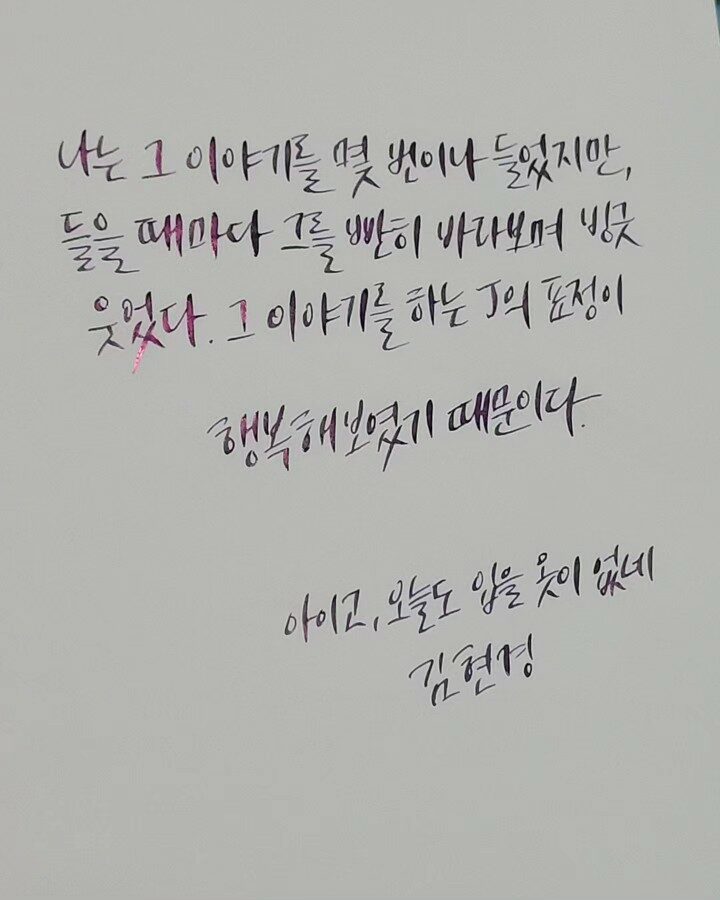 나는 그 이야기를 몇 번이나 들었지만,
들을 때마다 그를 빤히 바라보며 빙긋
웃었다. 그 이야기를 하는 J의 표정이
행복해보였기 때문이다.
아이고, 오늘도 입을 옷이 없네
김현경